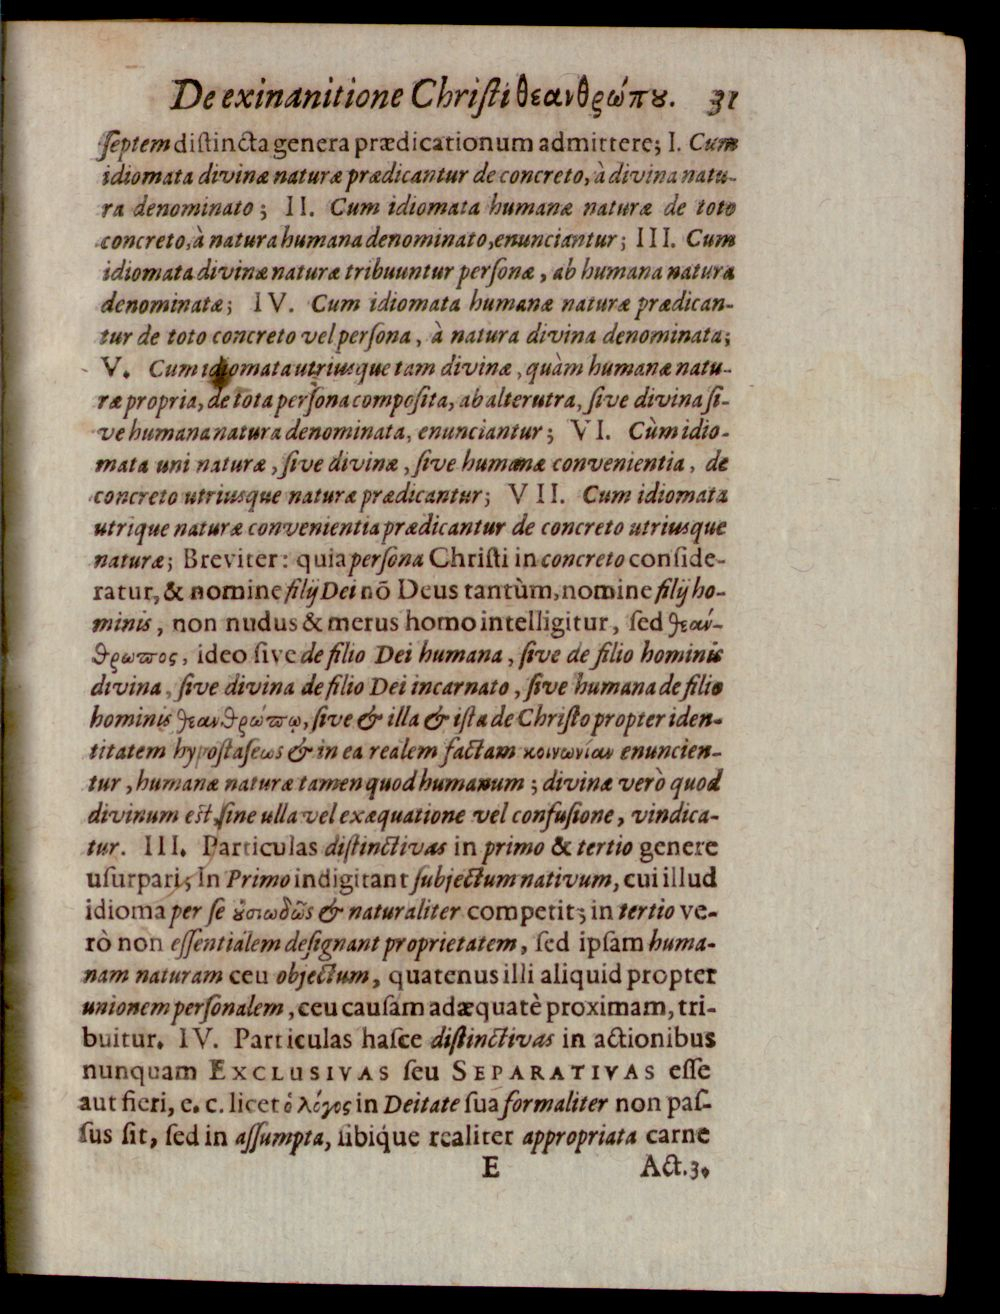 De exinanitione Christi θεανθρώπου. 31
septem distincta genera prædicationum admittere; I. Cum
idiomata divinæ naturæ prædicantur de concreto, à divina natu-
ra denominato; II. Cum idiomata humanæ naturæ de toto
concreto, à natura humana denominato, enunciantur; III. Cum
idiomata divinæ naturæ tribuuntur personæ, ab humana natura
denominatæ; IV. Cum idiomata humanæ naturæ prædican-
tur de toto concreto vel persona, à natura divina denominata;
V. Cum idiomata utriusque tam divinæ, quàm humanæ natu-
ræ propria, de tota persona composita, ab alterutra, sive divina si-
ve humana natura denominata, enunciantur; VI. Cùm idio-
mata uni naturæ, sive divinæ, sive humanæ convenientia, de
concreto utriusque naturæ prædicantur; VII. Cum idiomata
utrique naturæ convenientia prædicantur de concreto utriusque
naturæ; Breviter: quia persona Christi in concreto conside-
ratur, & nomine filij Dei nō Deus tantùm, nomine filij ho-
minis, non nudus & merus homo intelligitur, sed θεάν-
θρωπος, ideo sive de filio Dei humana, sive de filio hominis
divina, sive divina de filio Dei incarnato, sive humana de filio
hominis θεανθρώπῳ, sive & illa & ista de Christo propter iden-
titatem hypostaseως & in ea realem factam κοινωνίαν enuncien-
tur, humanæ naturæ tamen quod humanum; divinæ verò quod
divinum est, sine ulla vel exæquatione vel confusione, vindica-
tur. III. Particulas distinctivas in primo & tertio genere
usurpari; In Primo indigitant subjectum nativum, cui illud
idioma per se ουσιωδῶς & naturaliter competit; in tertio ve-
rò non essentialem designant proprietatem, sed ipsam huma-
nam naturam ceu objectum, quatenus illi aliquid propter
unionem personalem, ceu causam adæquatè proximam, tri-
buitur. IV. Particulas hasce distinctivas in actionibus
nunquam EXCLUSIVAS seu SEPARATIVAS esse
aut fieri, e. c. licet ὁ λόγος in Deitate sua formaliter non pas-
sus sit, sed in assumpta, sibique realiter appropriata carne
E Act.3.